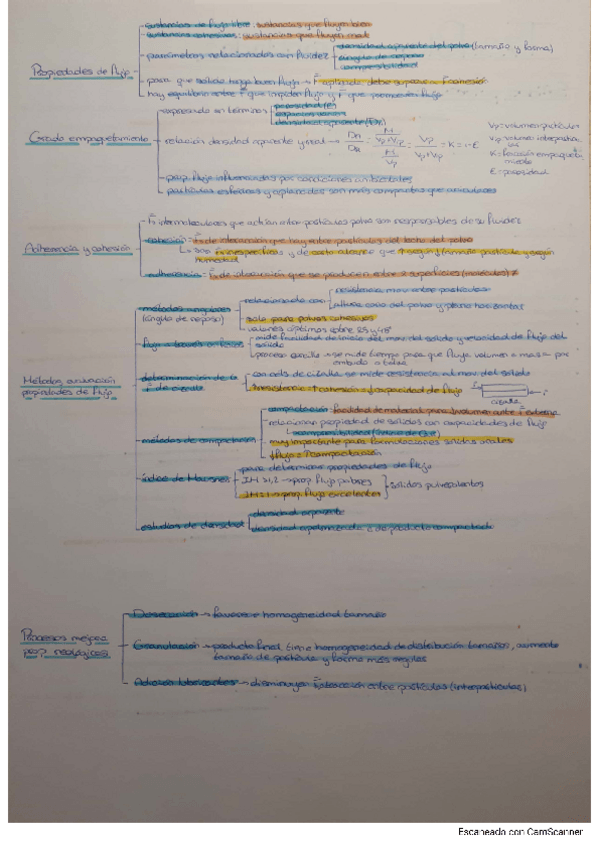 sustancias de flujo libre: sustancias que fluyen bien
sustancias cohesivas: sustancias que fluyen mal
parámetros relacionados con fluidez
densidad aparente del polvo (tamaño y forma)
ángulo de reposo
compresibilidad
Propiedades de flujo
para que sólido tenga buen flujo → F aplicada debe superar F cohesión
hay equilibrio entre F que impiden flujo y F que promueven flujo
Grado empaquetamiento
expresado en términos
porosidad (E)
densidad aparente (Da)
relación densidad aparente y real →
= K = 1-E
Vp = volumen partículas
K = fracción empaqueta-
miento
E = porosidad
prop. flujo influenciadas por condiciones ambientales
partículas esféricas y aplanadas son más compactas que aciculares
Adherencia y cohesión
F intermoleculares que actúan inter-partículas polvo son responsables de su fluidez
cohesión = F de atracción que hay entre partículas del lecho del polvo
son F inespecíficas y de corto alcance que ↑ según ↓ tamaño partícula y según
humedad
adherencia = F de atracción que se producen entre 2 superficies (materiales) ≠
Métodos evaluación
propiedades de flujo
métodos angulares
(ángulo de reposo)
relacionado con
resistencia mov. entre partículas
altura cono del polvo y plano horizontal
solo para polvos cohesivos
valores óptimos entre 25 y 45º
flujo a través orificio
mide facilidad de inicio del mov. del sólido y velocidad de flujo del
sólido
proceso sencillo → se mide tiempo para que fluya volumen o masa por
embudo o tolva
determinación de la
F de cizalla
con cels. de cizalla se mide resistencia al mov. del sólido
↑ resistencia = ↑ cohesión y ↓ capacidad de flujo
cizalla
métodos de compactación
compactación: facilidad de material para ↓ volumen ante F externa
relacionar propiedad de sólidos con capacidades de flujo
muy importante para formulaciones sólidas orales
↓ flujo = ↑ compactación
índice de Hausner
para determinar propiedades de flujo
IH > 1,2 → prop flujo pobres
IH ≈ 1 → prop. flujo excelentes
sólidos pulverulentos
estudios de densidad
densidad aparente
densidad aparente de producto compactado
Procesos mejora
prop. reológicas
Desecación → favorece homogeneidad tamaño
Granulación → producto final tiene homogeneidad de distribución tamaños, aumento
tamaño de partícula y forma más regular
Adición lubricantes → disminuyen F atracción entre partículas (interpartículas)
Escaneado con CamScanner